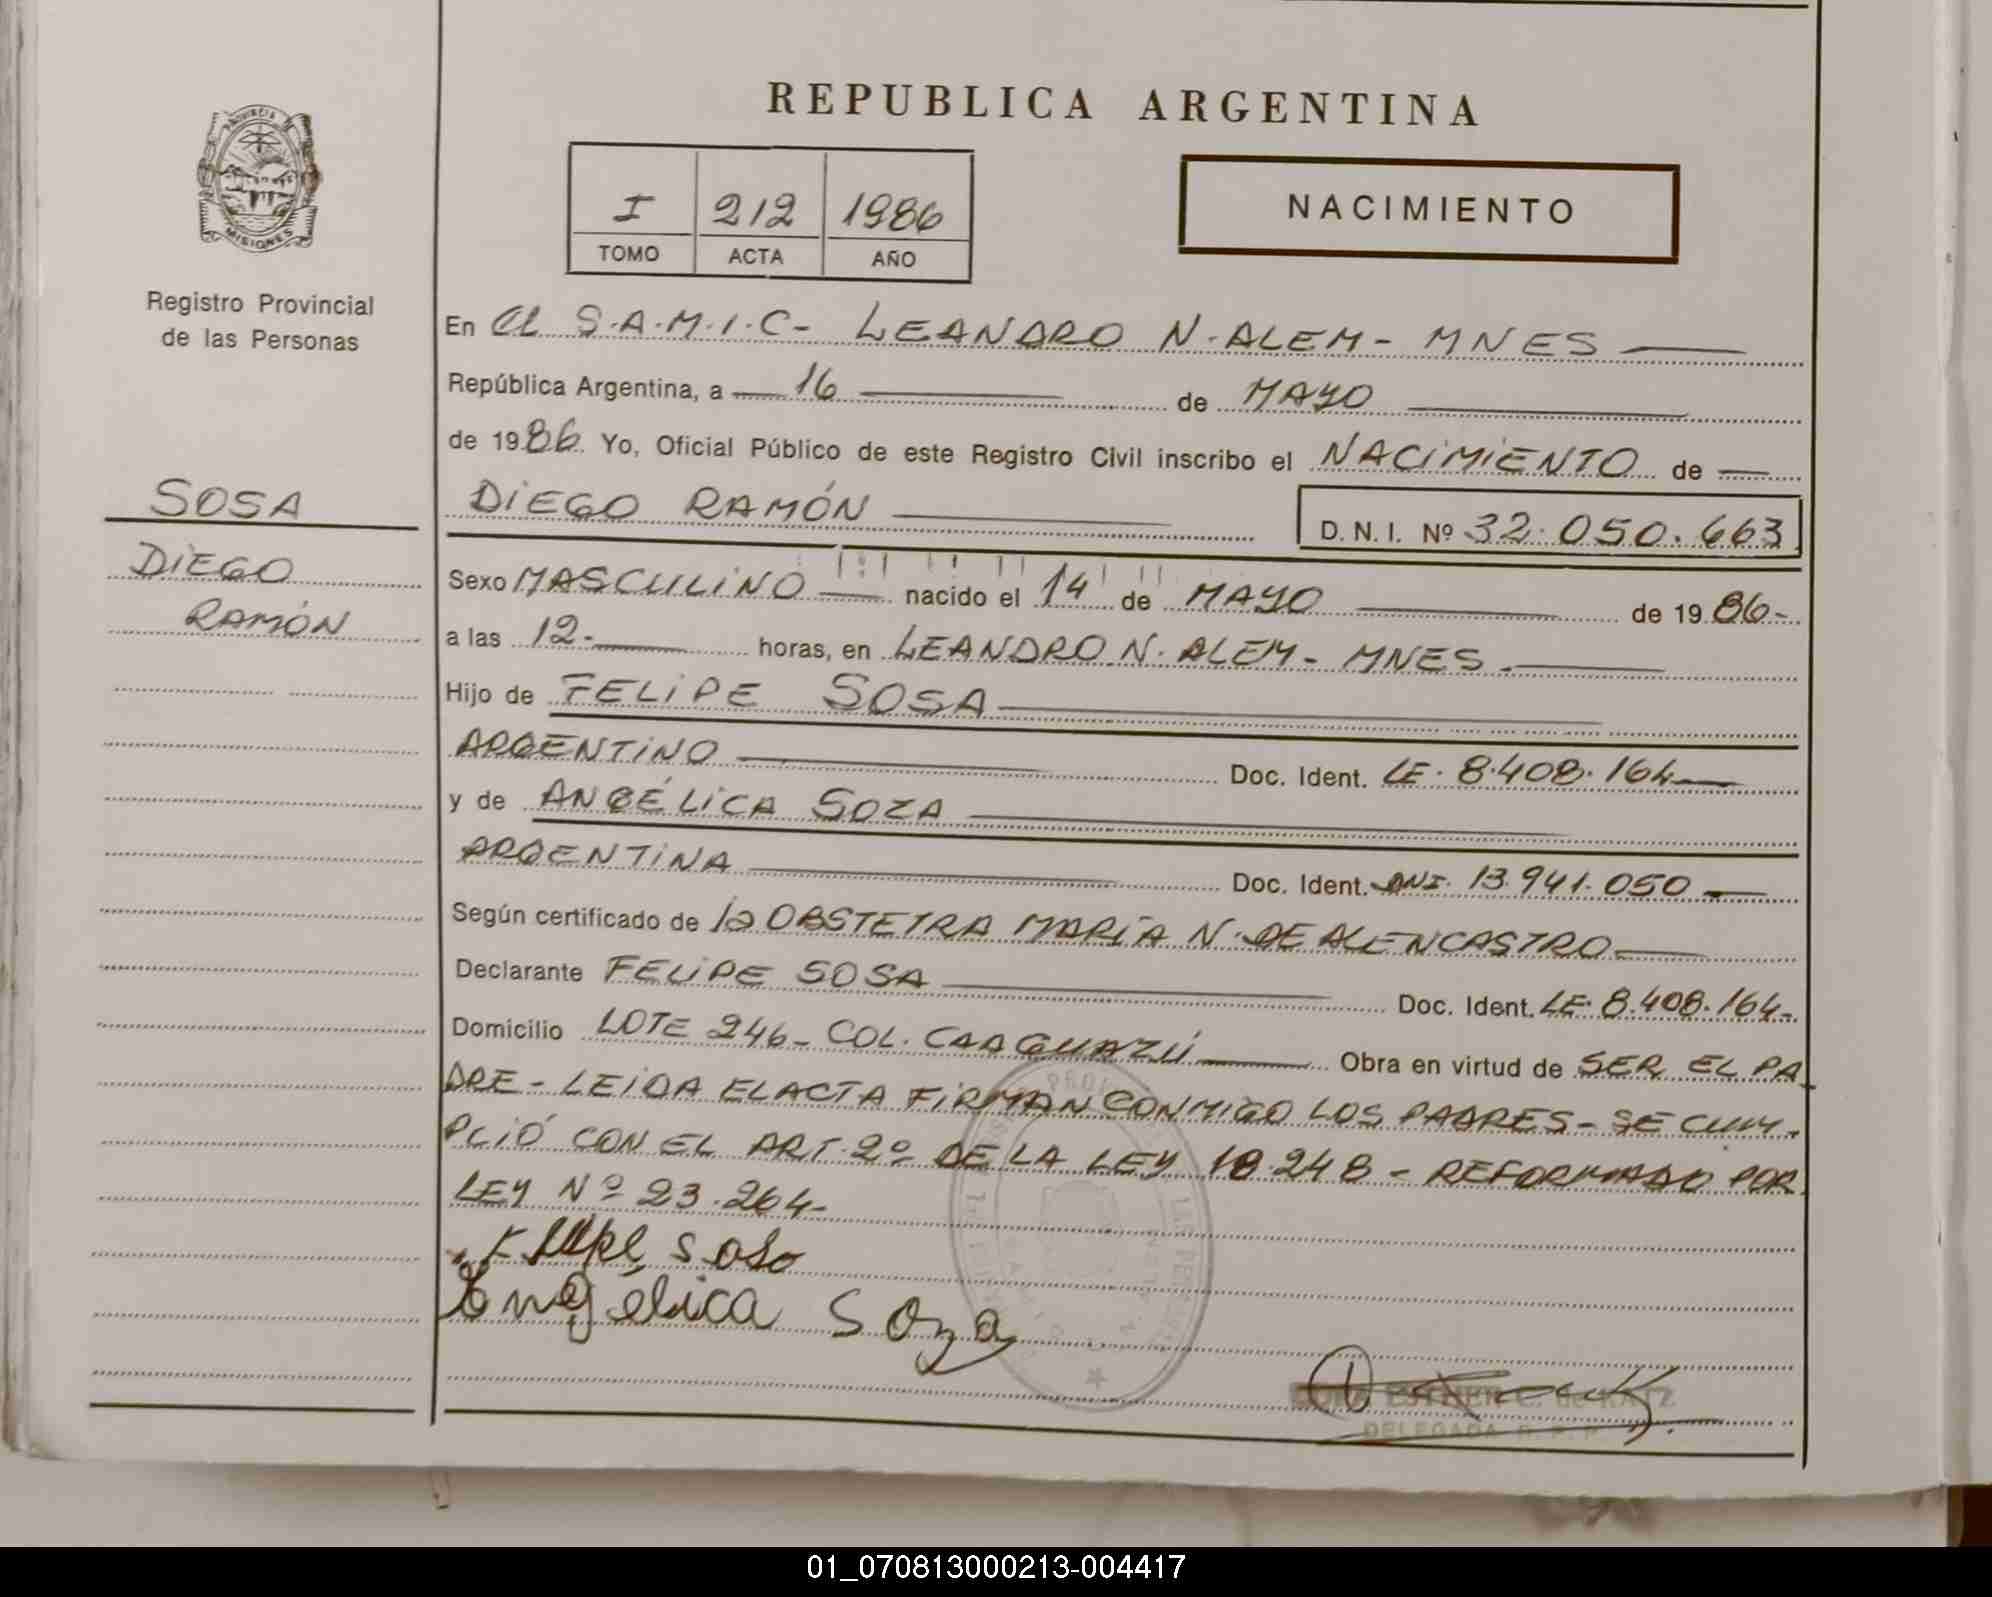 REPUBLICA ARGENTINA
PROVINCIA DE
MISIONES
Registro Provincial
de las Personas
I 212 1986
TOMO ACTA AÑO
NACIMIENTO
En el S.A.M.I.C- LEANDRO N. ALEM - MNES
República Argentina, a 16 de MAYO
de 1986 Yo, Oficial Público de este Registro Civil inscribo el NACIMIENTO de
SOSA
DIEGO
RAMÓN
DIEGO RAMÓN D.N.I. Nº 32.050.663
Sexo MASCULINO nacido el 14 de MAYO de 1986-
a las 12- horas, en LEANDRO N. ALEM - MNES
Hijo de FELIPE SOSA
ARGENTINO Doc. Ident. LE. 8.408.164
y de ANGÉLICA SOZA
ARGENTINA Doc. Ident. DNI. 13.941.050
Según certificado de la OBSTETRA MARÍA N. DE ALENCASTRO
Declarante FELIPE SOSA Doc. Ident. LE. 8.408.164-
Domicilio LOTE 246- COL. CAAGUAZÚ Obra en virtud de SER EL PA
DRE - LEIDA EL ACTA FIRMAN CONMIGO LOS PADRES - SE CUM-
PLIÓ CON EL ART. 2º DE LA LEY 18.248 - REFORMADO POR
LEY Nº 23.264-
Felipe Sosa
Angélica Soza
ESTHER C. de KATZ
DELEGADA R.P.P.
01_070813000213-004417